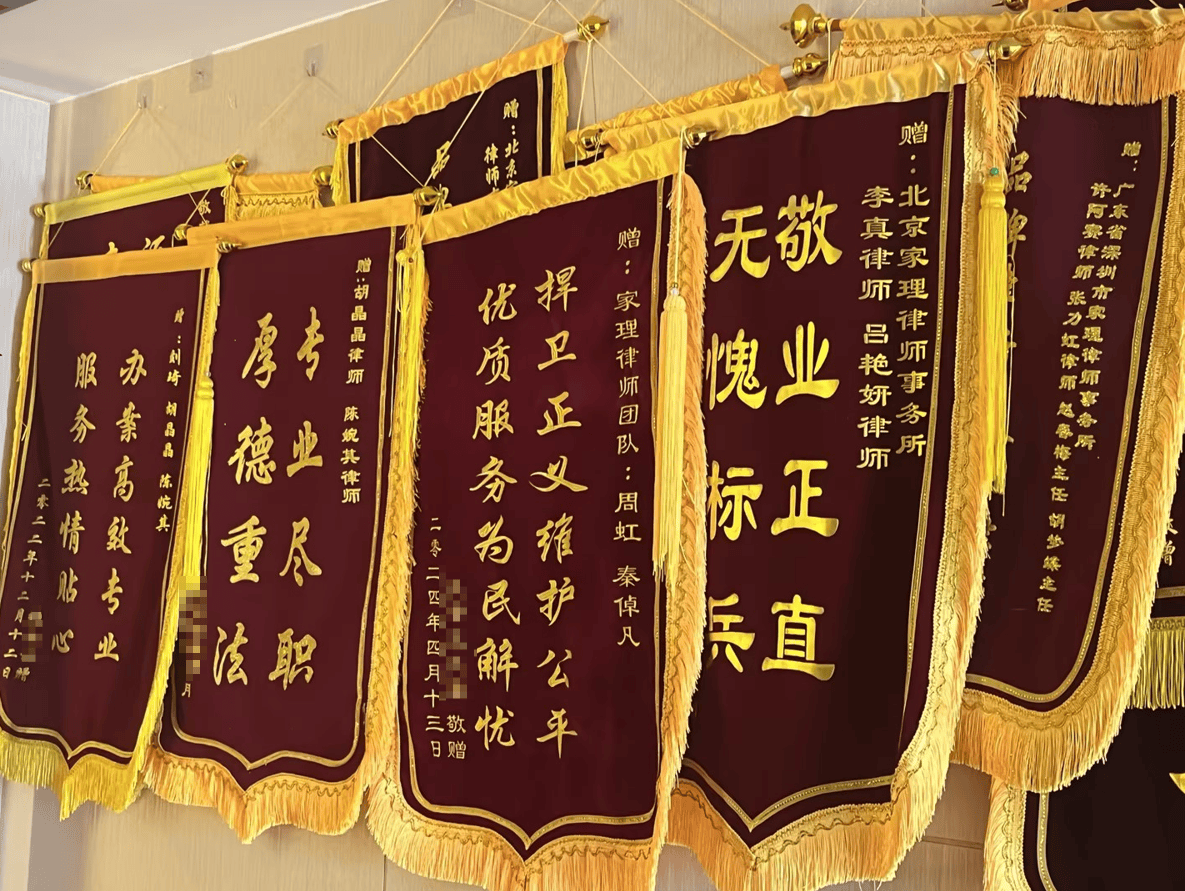 赠：刘琦 胡晶晶 陈婉其
办案高效专业
服务热情贴心
二零二二年十二月十二日
赠：胡晶晶律师 陈婉其律师
专业尽职
厚德重法
月
赠：家理律师团队：周虹 秦倬凡
捍卫正义维护公平
优质服务为民解忧
敬赠
二零二四年四月十三日
赠：北京家理律师事务所
李真律师 吕艳妍律师
敬业正直
无愧标兵
赠：北京
律师
赠：广东省深圳市家理律师事务所
品牌